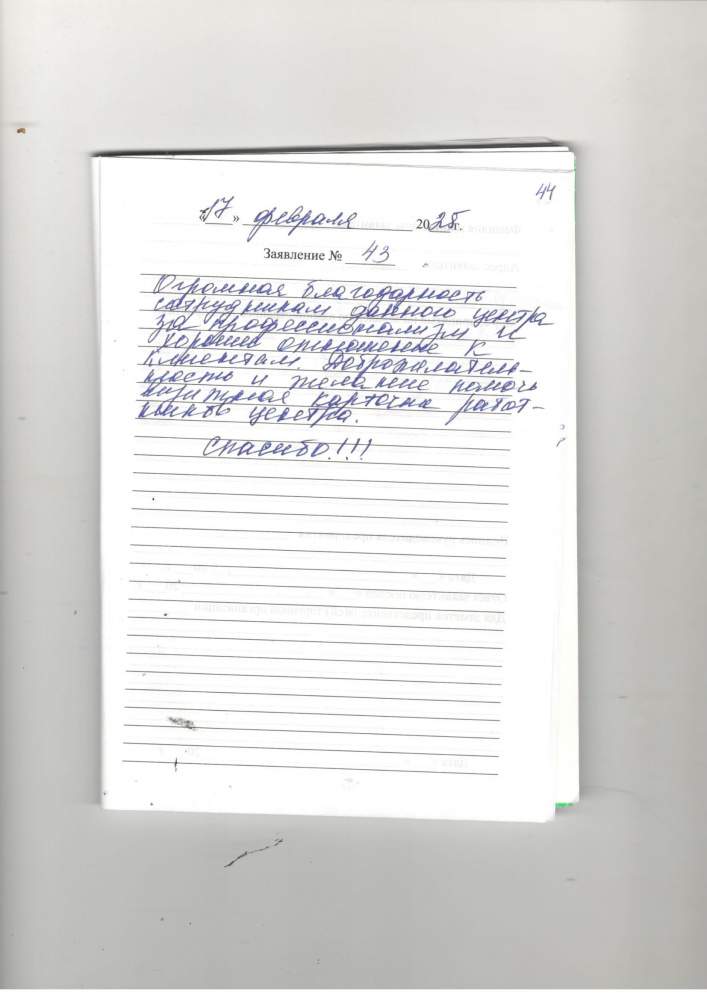 44
«17» февраля 2025г.
Заявление № 43
Огромная благодарность
сотрудникам данного центра
за профессионализм и
хорошее отношение к
клиентам. Доброжелатель-
ность и желание помочь
визитная карточка работ-
ников центра.
Спасибо!!!